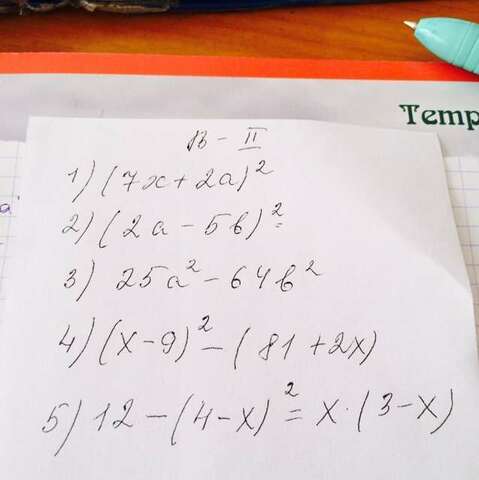 Temp
В - II
1) (7x + 2a)²
2) (2a - 5в)² =
3) 25a² - 64в²
4) (x - 9)² - (81 + 2x)
5) 12 - (4 - x)² = x · (3 - x)